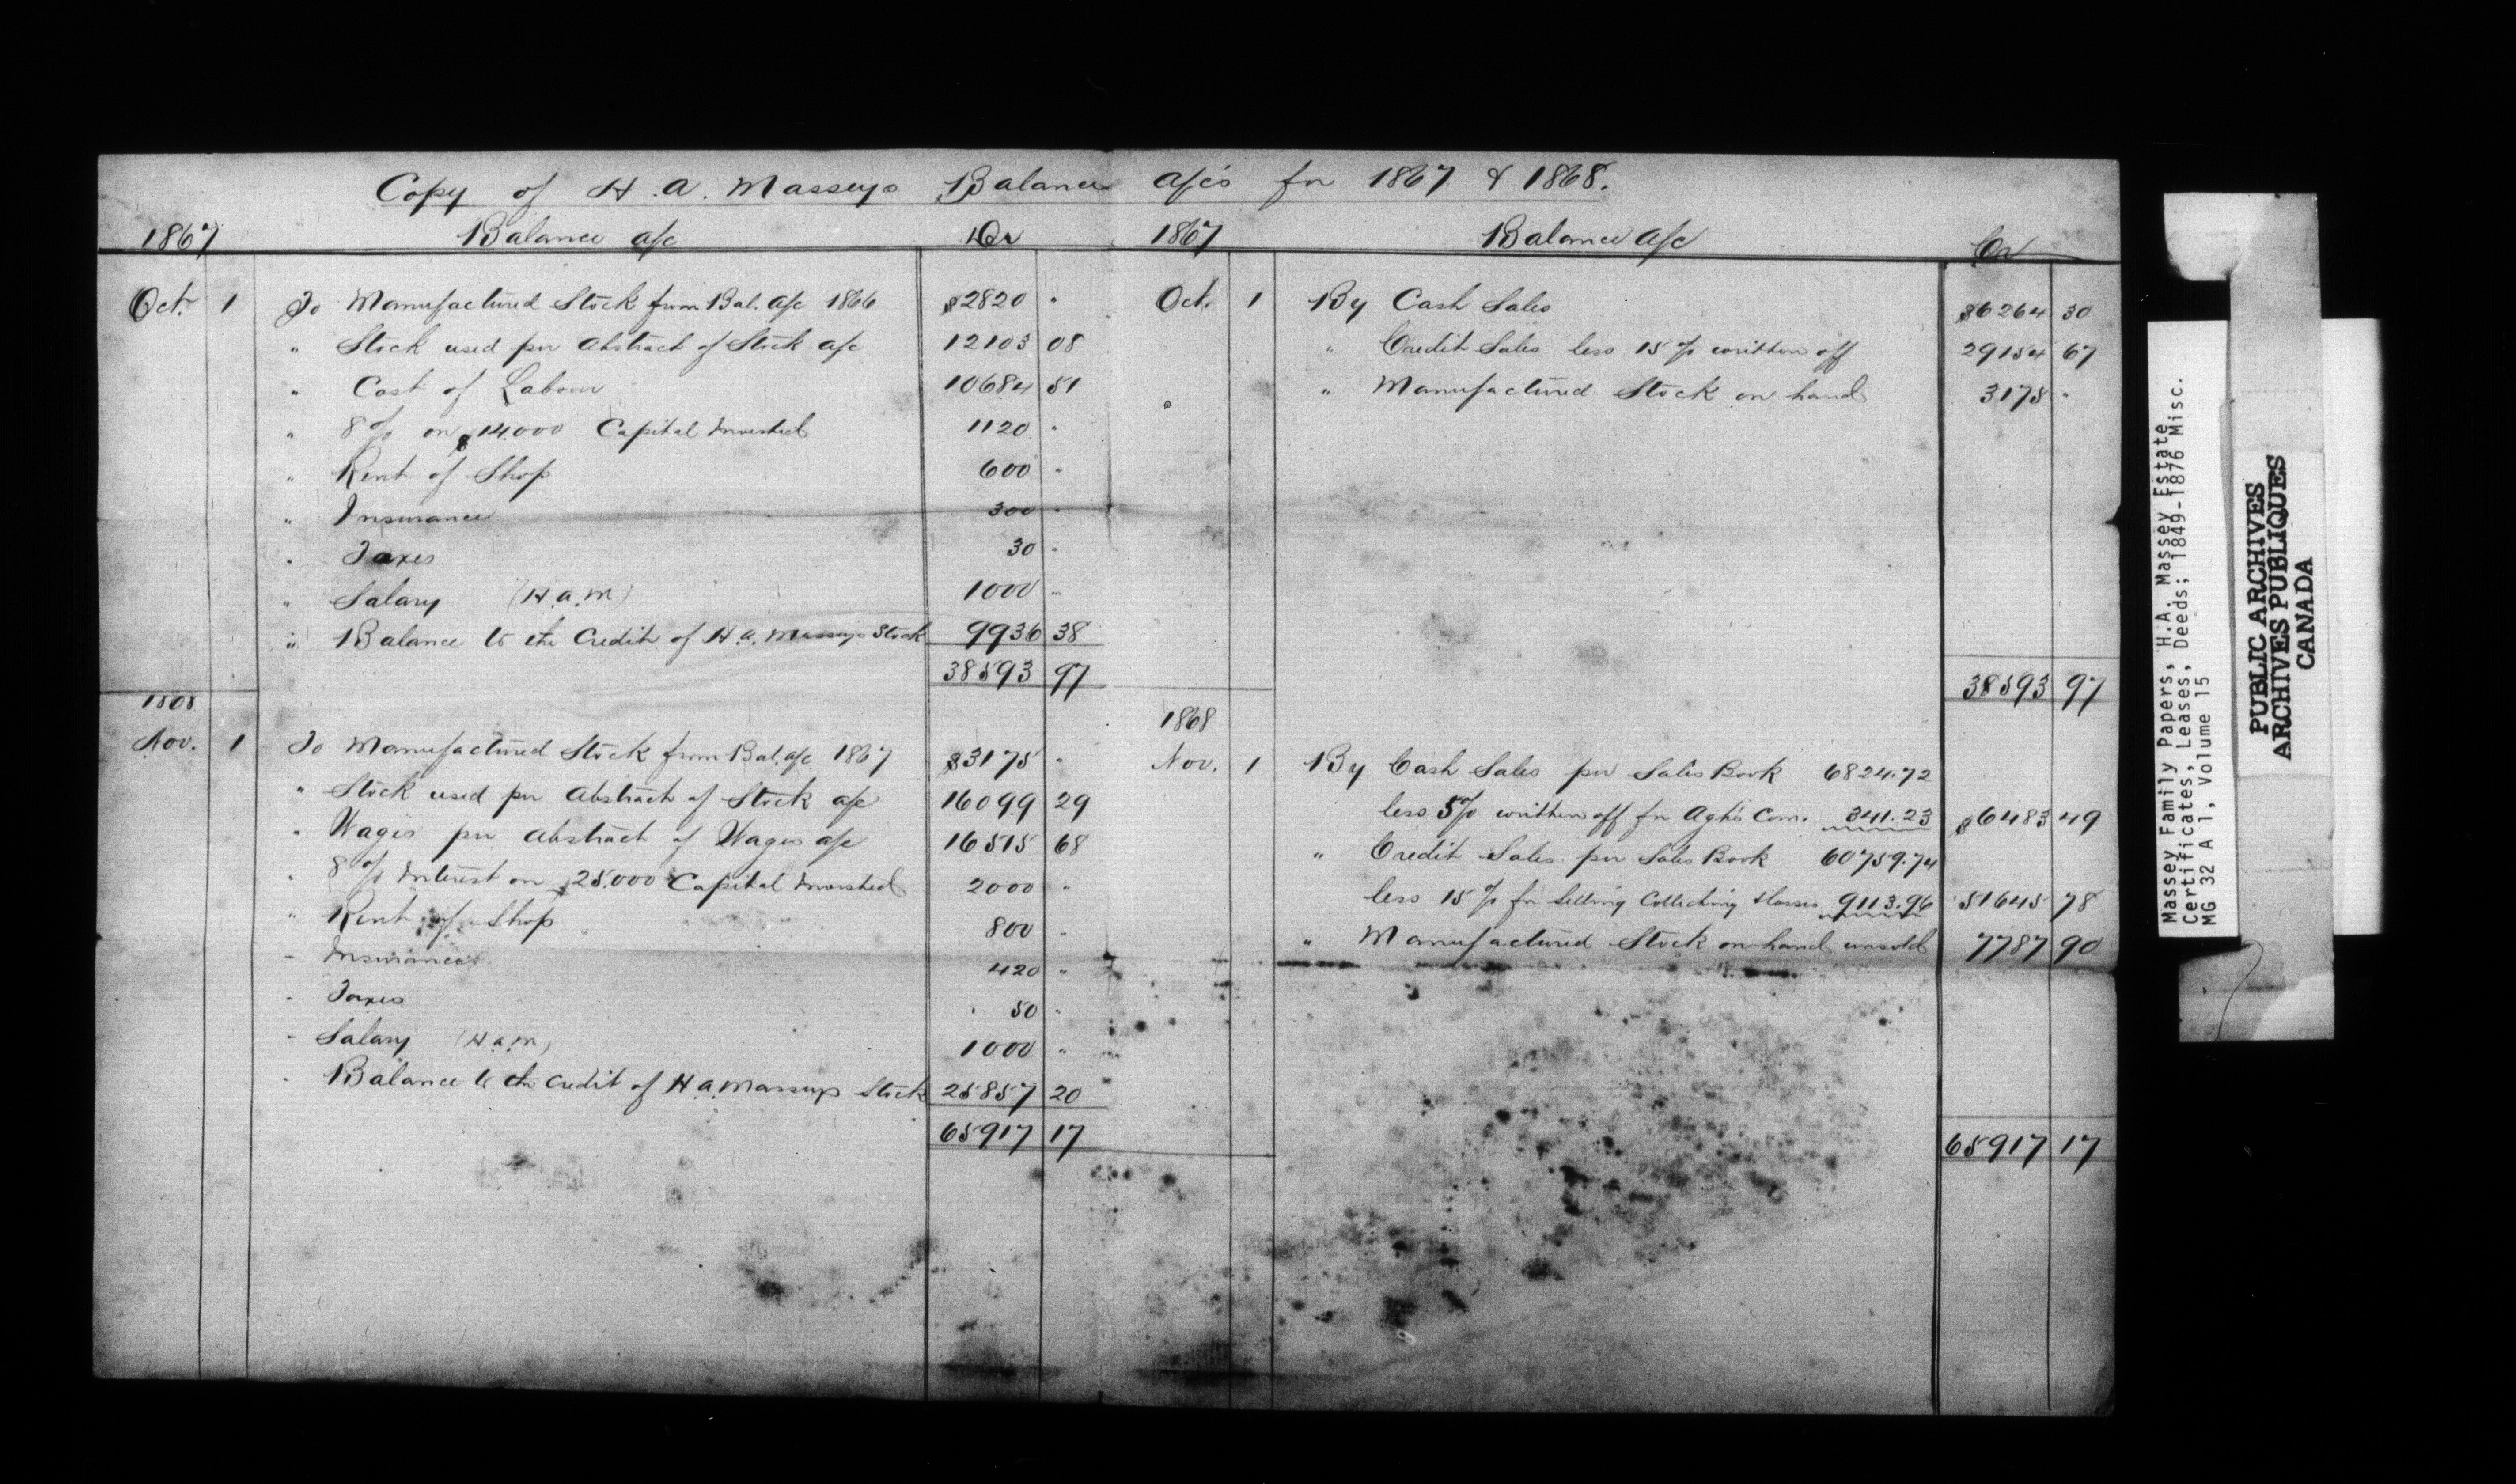 Copy of H. A. Masseys Balance a/cs for 1867 & 1868.
1867 Balance a/c Dr
Oct. 1 To Manufactured Stock from Bal. a/c 1866 $2820 "
" Stock used per Abstract of Stock a/c 12103 08
" Cost of Labour 10684 51
" 8 % on $14.000 Capital Invested 1120 "
" Rent of Shop 600 "
" Insurance 300 "
" Taxes 30 "
" Salary (H.A.M) 1000 "
" Balance to the Credit of H. A. Masseys Stock 9936 38
38593 97
1868
Nov. 1 To Manufactured Stock from Bal. a/c 1867 $3175 "
" Stock used per Abstract of Stock a/c 16099 29
" Wages per Abstract of Wages a/c 16515 68
" 8 % Interest on $25.000 Capital Invested 2000 "
" Rent of Shop 800 "
" Insurance 420 "
" Taxes 50 "
" Salary (H.A.M) 1000 "
" Balance to the Credit of H A. Masseys Stock 25857 20
65917 17
1867 Balance a/c Cr
Oct. 1 By Cash Sales $6264 30
" Credit Sales less 15 % written off 29154 67
" Manufactured Stock on hand 3175 "
38593 97
1868
Nov. 1 By Cash Sales per Sales Book 6824.72
less 5% written off for Agts Com. 341.23 $6483 49
" Credit Sales per Sales Book 60759.74
less 15 % for Selling Collecting & losses 9113.96 51645 78
" Manufactured Stock on hand unsold 7787 90
65917 17
Massey Family Papers, H.A. Massey Estate
Certificates, Leases, Deeds; 1849-1876 Misc.
MG 32 A 1, Volume 15
PUBLIC ARCHIVES
ARCHIVES PUBLIQUES
CANADA